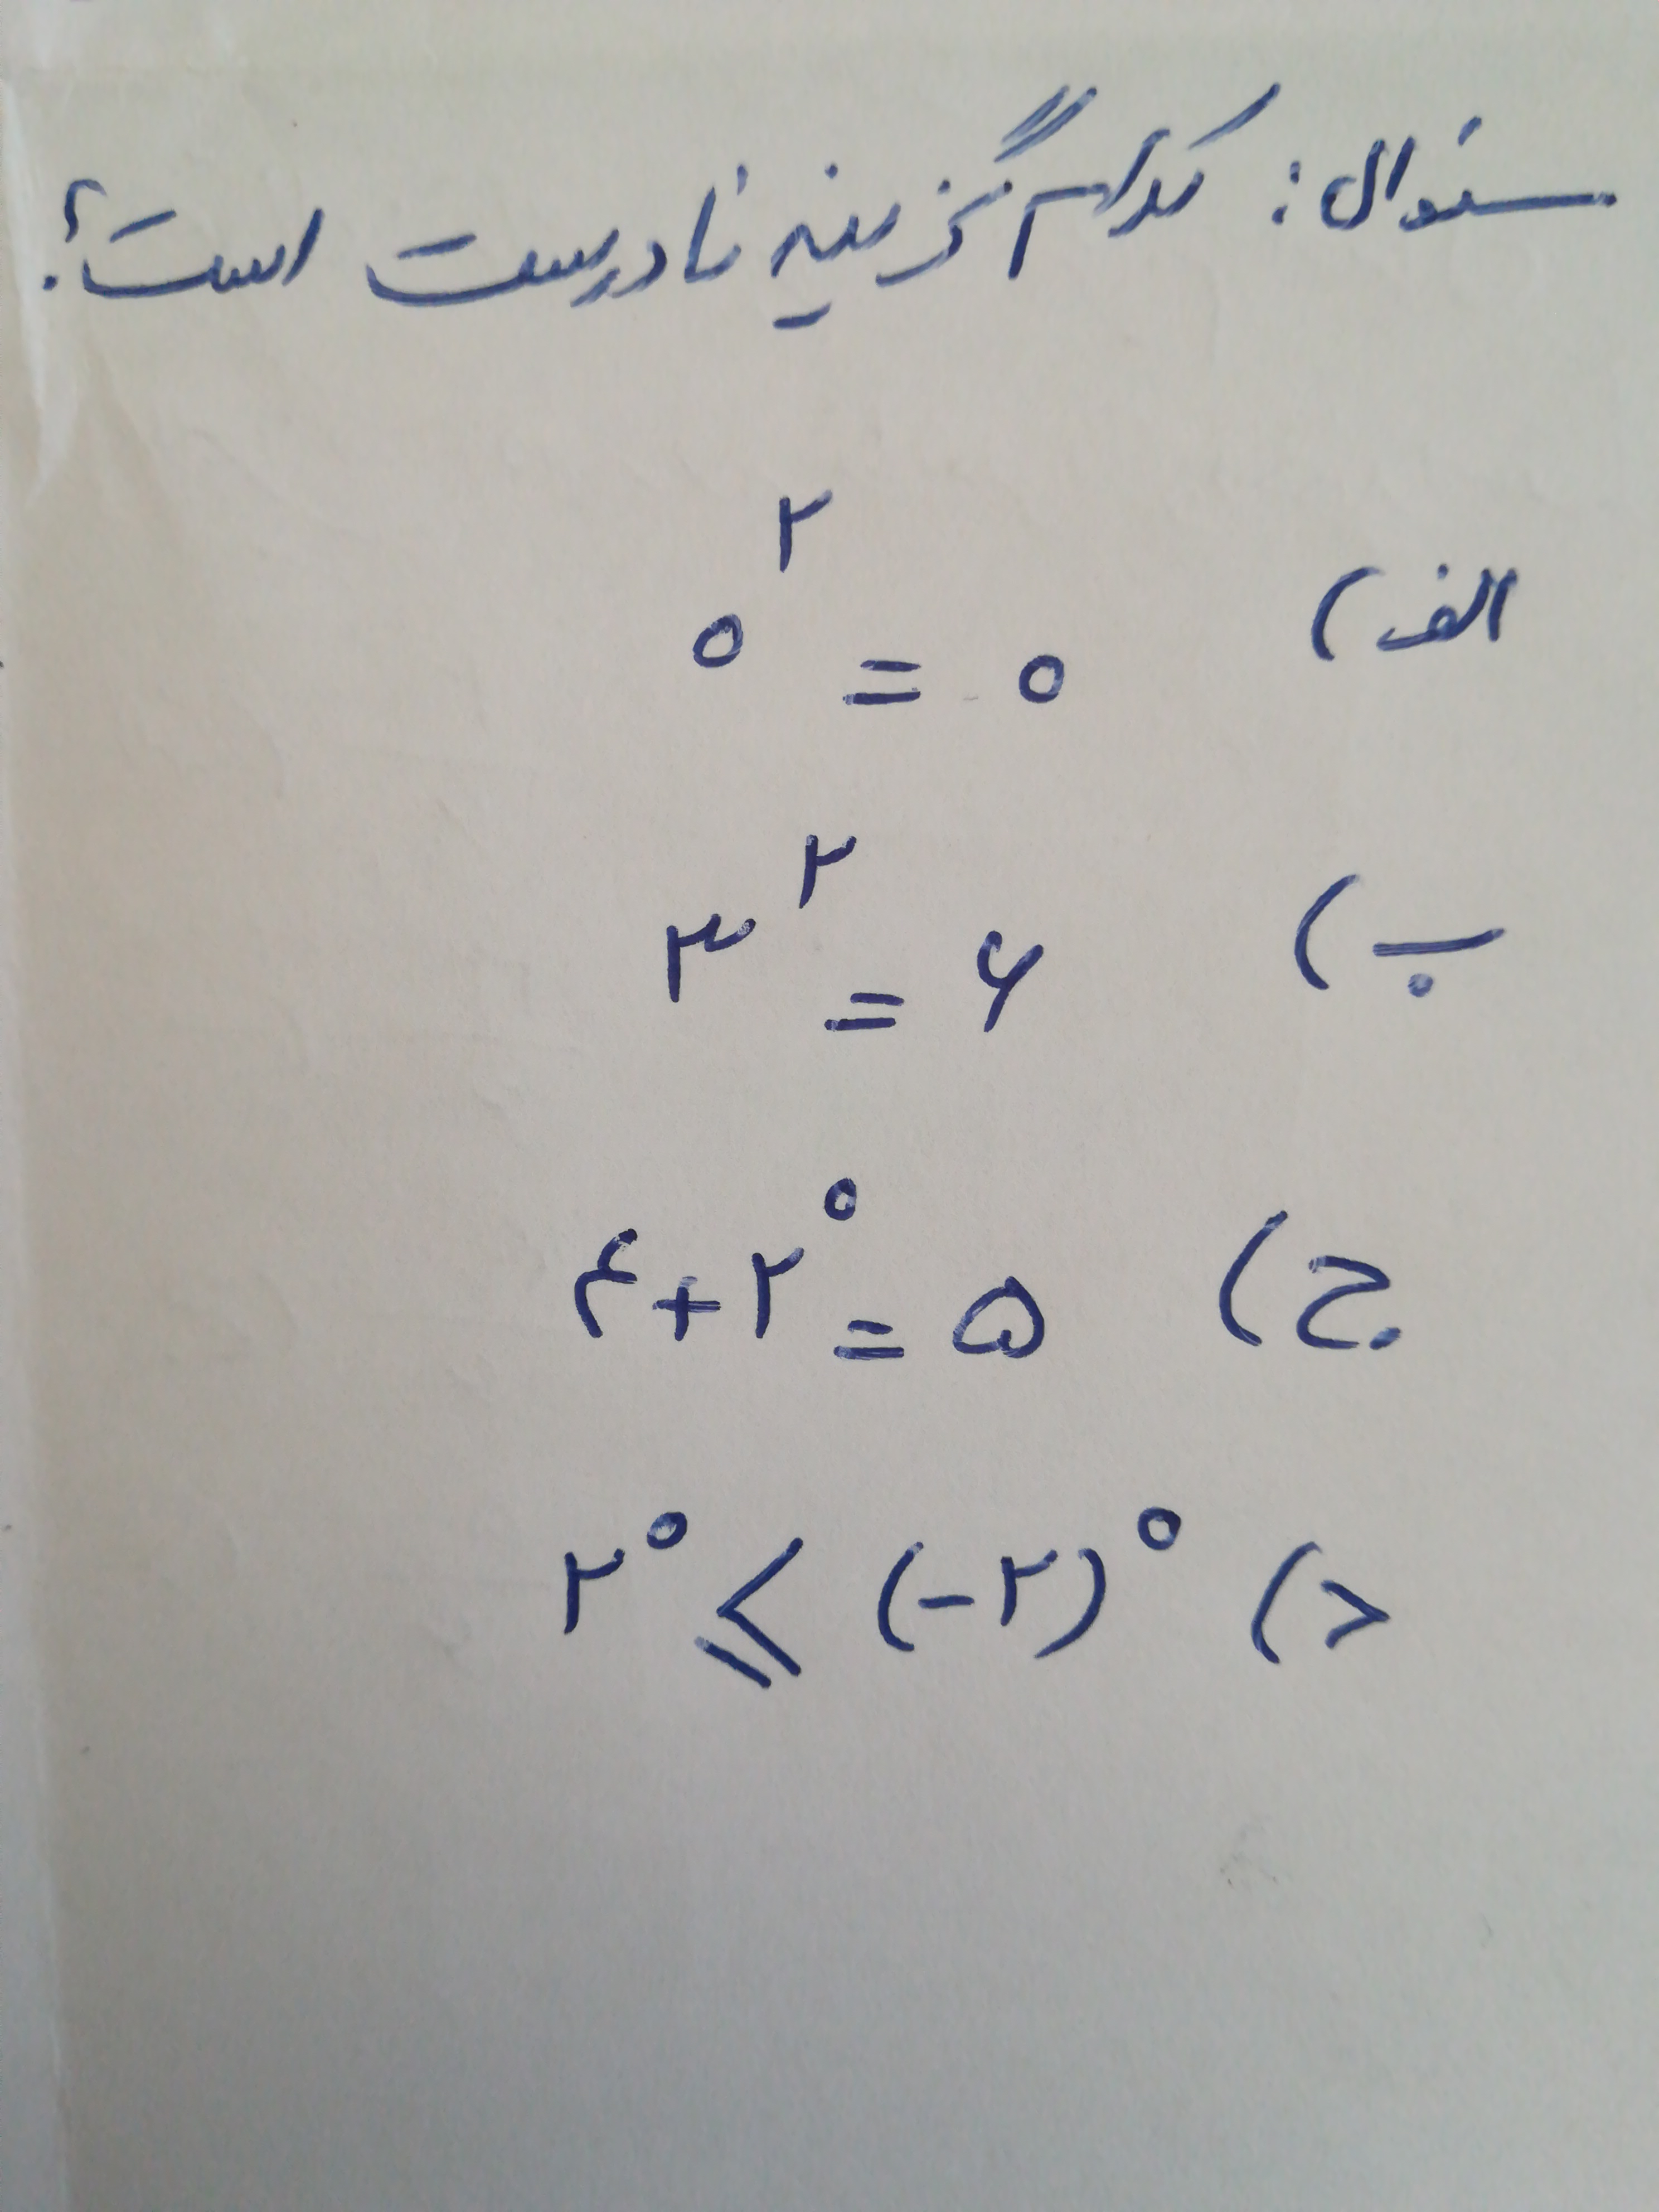 سئوال: کدام گزینه نادرست است؟
الف) ۰^۲ = ۰
ب) ۳^۲ = ۶
ج) ۴+۲^۰ = ۵
د) ۲^۰ ⩽ (-۲)^۰